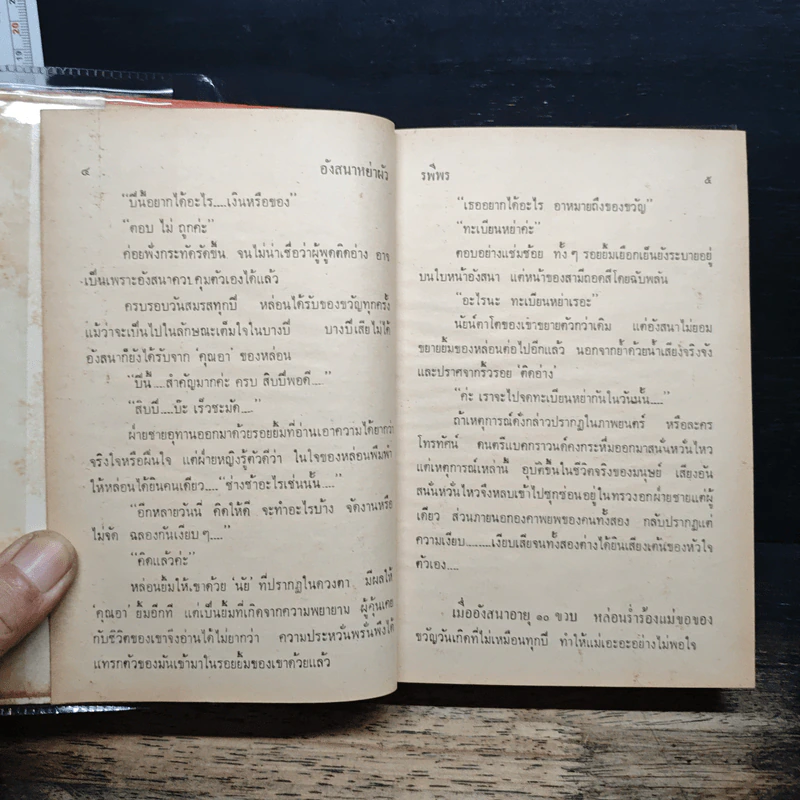 ๔ อังสนาหย่าผัว
“ปีนี้อยากได้อะไร.....เงินหรือของ”
“ตอบ ไม่ ถูกค่ะ”
ค่อยฟังกระทัครัดขึ้น จนไม่น่าเชื่อว่าผู้พูดติดอ่าง อาจ
เป็นเพราะอังสนาควบคุมตัวเองได้แล้ว
ครบรอบวันสมรสทุกปี หล่อนได้รับของขวัญทุกครั้ง
แม้ว่าจะเป็นไปในลักษณะเต็มใจในบางปี บางปีเสียไม่ได้
อังสนาก็ยังได้รับจาก ‘คุณอา’ ของหล่อน
“ปีนี้.....สำคัญมากค่ะ ครบ สิบปีพอดี.....”
“สิบปี.....บ๊ะ เร็วชะมัด.....”
ฝ่ายชายอุทานออกมาด้วยรอยยิ้มที่อ่านเอาความได้ยากว่า
จริงใจหรือฝืนใจ แต่ฝ่ายหญิงรู้ตัวดีว่า ในใจของหล่อนพึมพำ
ให้หล่อนได้ยินคนเดียว.....“ช่างช่ำอะไรเช่นนั้น.....”
“อีกหลายวันนี่ คิดให้ดี จะทำอะไรบ้าง จัดงานหรือ
ไม่จัด ฉลองกันเงียบ ๆ.....”
“คิดแล้วค่ะ”
หล่อนยิ้มให้เขาด้วย ‘นัย’ ที่ปรากฏในดวงตา มีผลให้
‘คุณอา’ ยิ้มอีกที แต่เป็นยิ้มที่เกิดจากความพยายาม ผู้คุ้นเคย
กับชีวิตของเขาจึงอ่านได้ไม่ยากว่า ความประหวั่นพรั่นพึงได้
แทรกตัวของมันเข้ามาในรอยยิ้มของเขาด้วยแล้ว
รพีพร ๕
“เธออยากได้อะไร อาหมายถึงของขวัญ”
“ทะเบียนหย่าค่ะ”
ตอบอย่างแช่มช้อย ทั้ง ๆ รอยยิ้มเยือกเย็นยังระบายอยู่
บนใบหน้าอังสนา แต่หน้าของสามีถอดสีโดยฉับพลัน
“อะไรนะ ทะเบียนหย่าเรอะ”
นัยน์ตาโตของเขาขยายตัวกว่าเดิม แต่อังสนาไม่ยอม
ขยายยิ้มของหล่อนต่อไปอีกแล้ว นอกจากย้ำด้วยน้ำเสียงจริงจัง
และปราศจากริ้วรอย ‘ติดอ่าง’
“ค่ะ เราจะไปจดทะเบียนหย่ากันในวันนั้น.....”
ถ้าเหตุการณ์ดังกล่าวปรากฏในภาพยนตร์ หรือละคร
โทรทัศน์ ดนตรีแบคกราวนด์คงกระหึ่มออกมาสนั่นหวั่นไหว
แต่เหตุการณ์เหล่านี้ อุบัติขึ้นในชีวิตจริงของมนุษย์ เสียงอัน
สนั่นหวั่นไหวจึงหลบเข้าไปซุกซ่อนอยู่ในทรวงอกฝ่ายชายแต่ผู้
เดียว ส่วนภายนอกองคาพยพของคนทั้งสอง กลับปรากฏแต่
ความเงียบ..........เงียบเสียจนทั้งสองต่างได้ยินเสียงเต้นของหัวใจ
ตัวเอง.....
เมื่ออังสนาอายุ ๑๐ ขวบ หล่อนร่ำร้องแม่ขอของ
ขวัญวันเกิดที่ไม่เหมือนทุกปี ทำให้แม่เอะอะอย่างไม่พอใจ